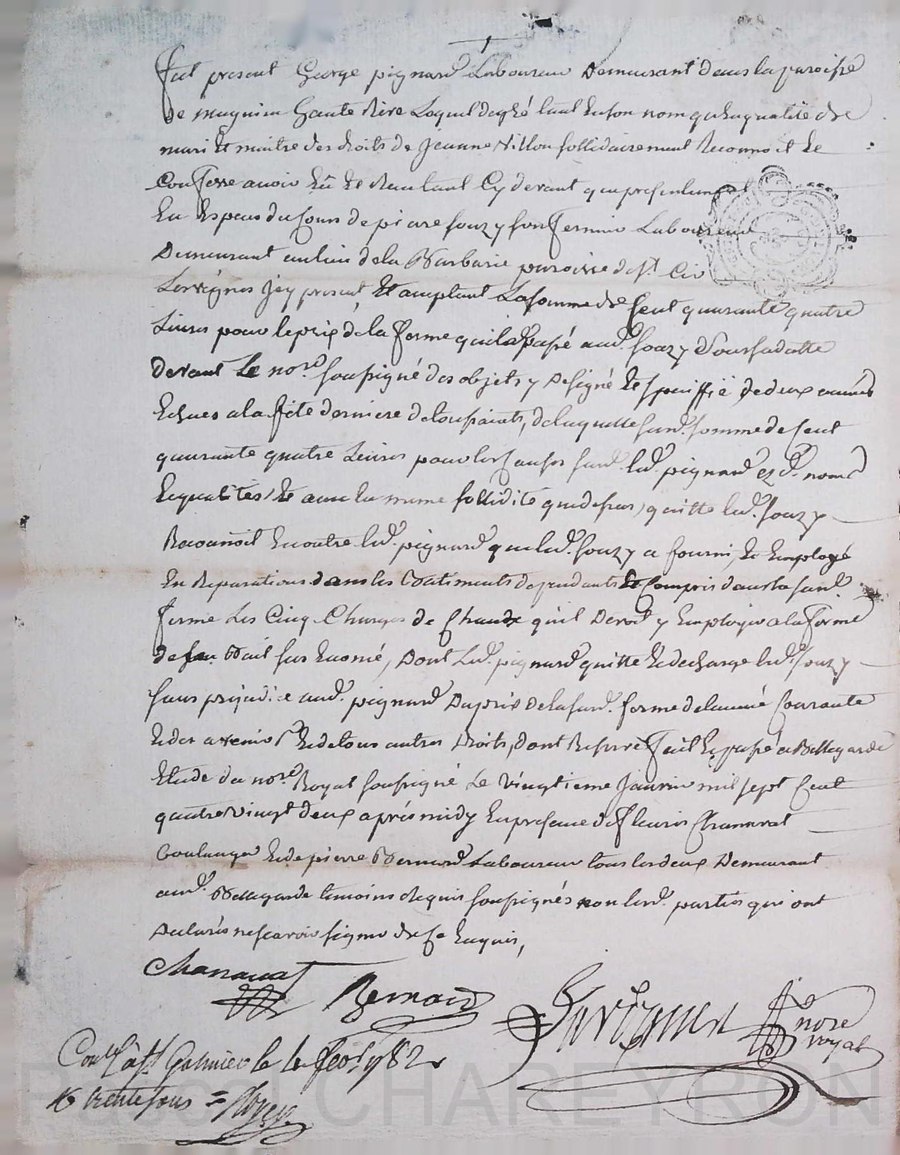 fut present George pignard Laboureur Demeurant dans la paroisse
de maguieu haute Rive Loquel de gré tant en son nom qu'en qualité de
mari et maitre des droits de Jeanne Villon sollidairement Reconnoit et
Confesse avoir Eû et Reçu tant Cy devant que presentement
En Especes du Cours de pierre souzy son fermier Laboureur
Demeurant au lieu de la Barbarie paroisse de St. Cir
Les vignes Jcy present Et acceptant La somme de Cent quarante quatre
Livres pour le prix de la ferme qu'il a passé aud. souzy
devant Le nore. soussigné des objets y designé et specifié, de deux années
Echues a la fête derniere de toussaints, de laquelle susd. somme de Cent
quarante quatre Livres pour les causes susd. led. pignard ez d. noms
Et qualités Et avec la meme sollidité que dessus, quitte led. souzy
Reconnoit En outre led. pignard que led. souzy a fourni, Et Employé
En Reparations dans les Batiments dependants Et Compris dans la susd.
ferme Les Cinq Charges de Chaux qu'il Devoit y Employer a la forme
de son Bail sus Enoncé, Dont Led. pignard quitte Et decharge led. souzy
sans prejudice aud. pignard Du prix de la susd. ferme de l'année Courante
Et des a venir Et de tous autres Droits, dont Reserve fait Et passé a Bellegarde
Etude du nore. Royal soussigné Le vingtieme Janvier mil sept Cent
quatre vingt deux après midy En presence de fleury Chanavat
Boulanger Et de pierre Bernard Laboureur tous les deux Demeurant
aud. Bellegarde temoins Requis soussignés non lesd. parties qui ont
Declarés ne scavoir signer de ce Enquis,
Chanavat
Bernard
nore
royal
Conlé à St Galmier le 1er feor 1782 r
16 trente sous =
Pascal CHAREYRON